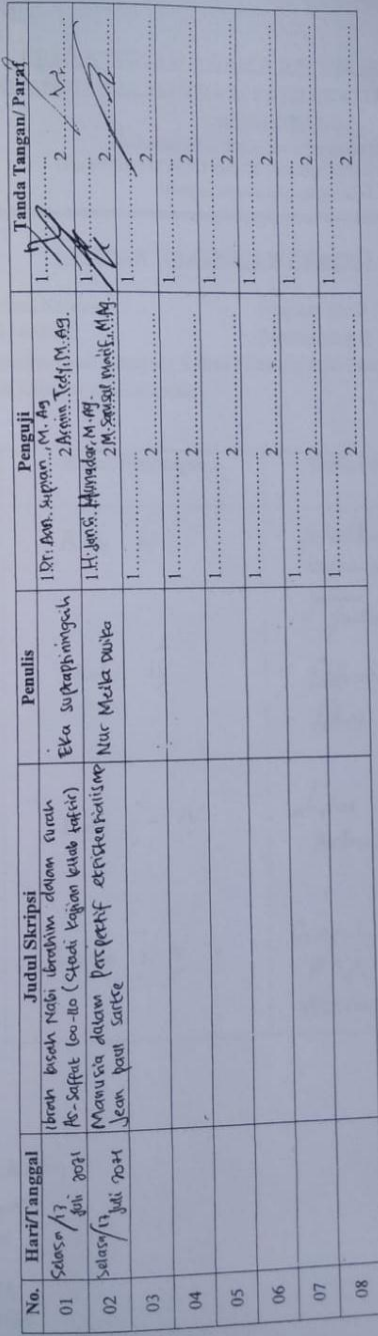 No. Hari/Tanggal Judul Skripsi Penulis Penguji Tanda Tangan/ Paraf
01 Selasa/13 Juli 2021 Ibrah kisah Nabi ibrahim dalam surah As-Saffat 100-110 (Studi kajian kitab tafsir) Eka supraphiningsih 1. Dr. Aan. Supian, M. Ag 2 Armin Tedy, M. Ag. 1 2
02 Selasa/13 Juli 2021 Manusia dalam Perspektif eksistensialisme Jean paul Sartre Nur Meika Dwika 1. H. Munadar, M. Ag. 2 M. Samsul Ma'arif, M. Ag. 1 2
03 1 2
04 1 2
05 1 2
06 1 2
07 1 2
08 1 2